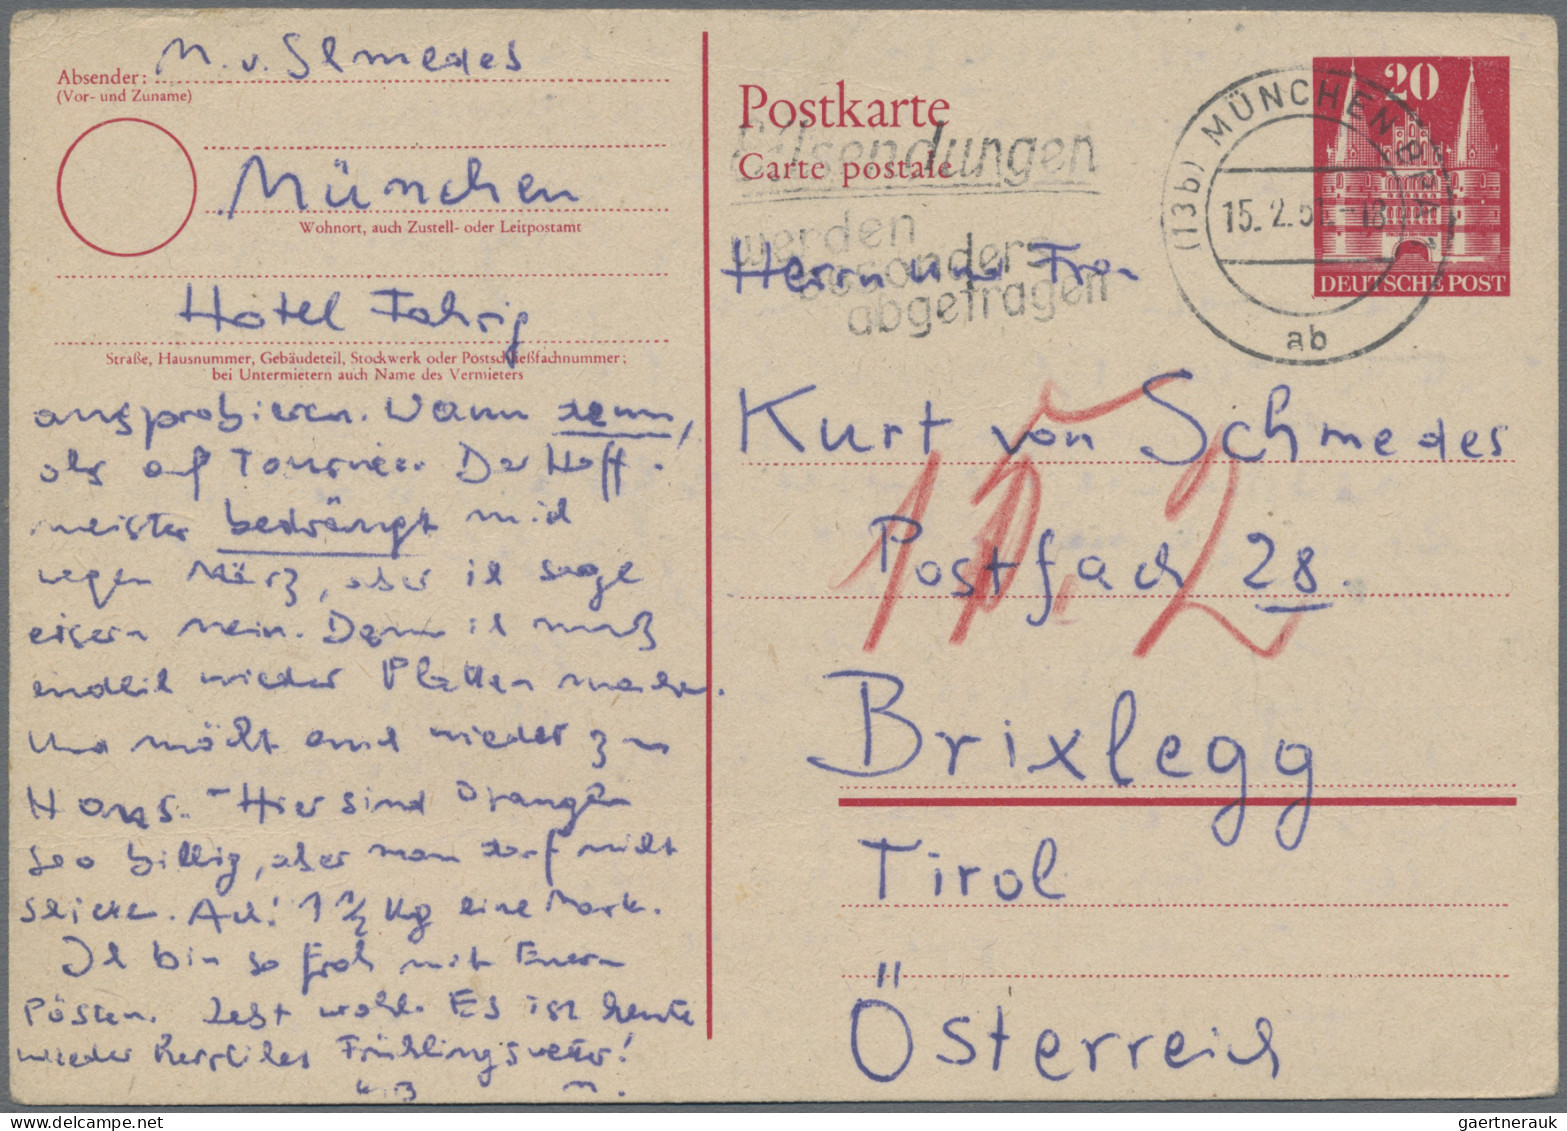 Absender: M. v. Schmedes
(Vor- und Zuname)
München
Wohnort, auch Zustell- oder Leitpostamt
Hotel Fahrig
Straße, Hausnummer, Gebäudeteil, Stockwerk oder Postschließfachnummer;
bei Untermietern auch Name des Vermieters
ausprobieren. Wann denn,
als auf Tournee. Der Hoff-
meister bedrängt mich
wegen März, aber ich sage
eisern nein. Denn ich muß
endlich wieder Platten machen.
Und möcht auch wieder zu
Haus. - Hier sind Orangen
so billig, aber man darf nicht
schicken. Ach! 1 1/2 Kg eine Mark.
Ich bin so froh mit Euern
Posten. Lebt wohl. Es ist heute
wieder herrliches Frühlingswetter!
M.
Postkarte
Carte postale
Eilsendungen
werden
besonders
abgetragen
20
DEUTSCHE POST
(13b) MÜNCHEN
15. 2. 51. -18
ab
Herrn und Frau
Kurt von Schmedes
Postfach 28.
Brixlegg
Tirol
Österreich
gaertnerauk